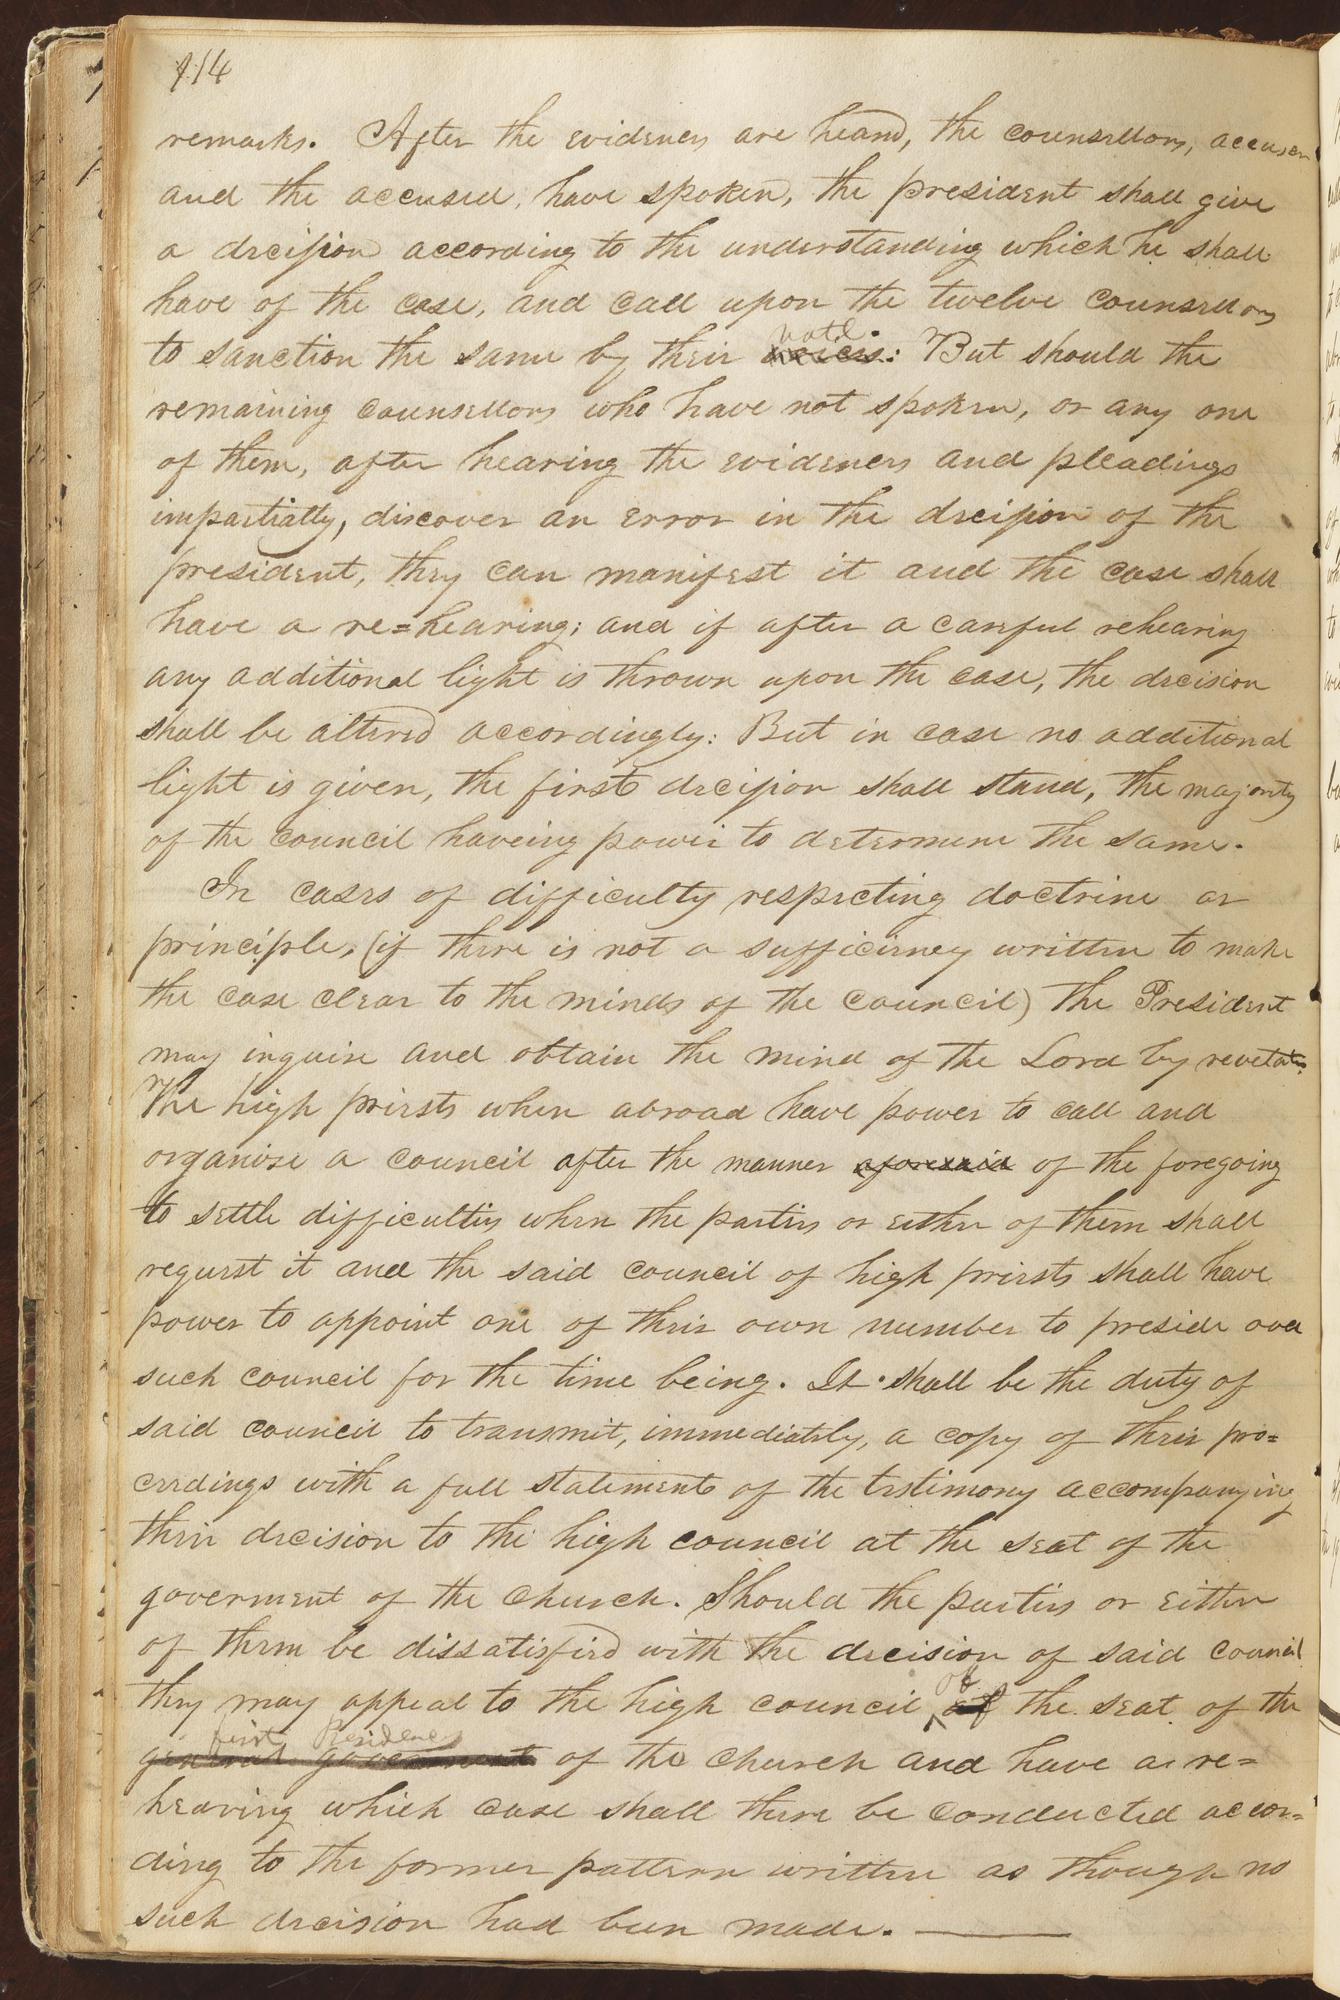 114
remarks. After the evidences are heard, the counsellors, accuser
and the accused, have spoken, the president shall give
a decission according to the understanding which he shall
have of the case, and call upon the twelve counsellors
vote.
to sanction the same by their voices: But should the
remaining counsellors who have not spoken, or any one
of them, after hearing the evidences and pleadings
impartially, discover an error in the decission of the
president, they can manifest it and the case shall
have a re=hearing; and if after a careful rehearing
any additional light is thrown upon the case, the decision
shall be altered accordingly: But in case no additional
light is given, the first decission shall stand, the majority
of the council haveing power to determine the same.
In cases of difficulty respecting doctrine or
principle, (if there is not a sufficiency written to make
the case clear to the minds of the council) the President
may inquire and obtain the mind of the Lord by revelation
The high priests when abroad have power to call and
organise a council after the manner aforesaid of the foregoing
to settle difficulties when the parties or either of them shall
request it and the said council of high priests shall have
power to appoint one of their own number to preside over
such council for the time being. It shall be the duty of
said council to transmit, immediately, a copy of their pro=
ceedings with a full statement of the testimony accompanying
their decision to the high council at the seat of the
goverment of the Church. Should the parties or either
of them be dissatisfied with the decision of said council
of
they may appeal to the high council at the seat of the
first Presidency
general government of the Church and have a re=
hearing which case shall there be conducted accor=
ding to the former pattern written as though no
such decision had been made.